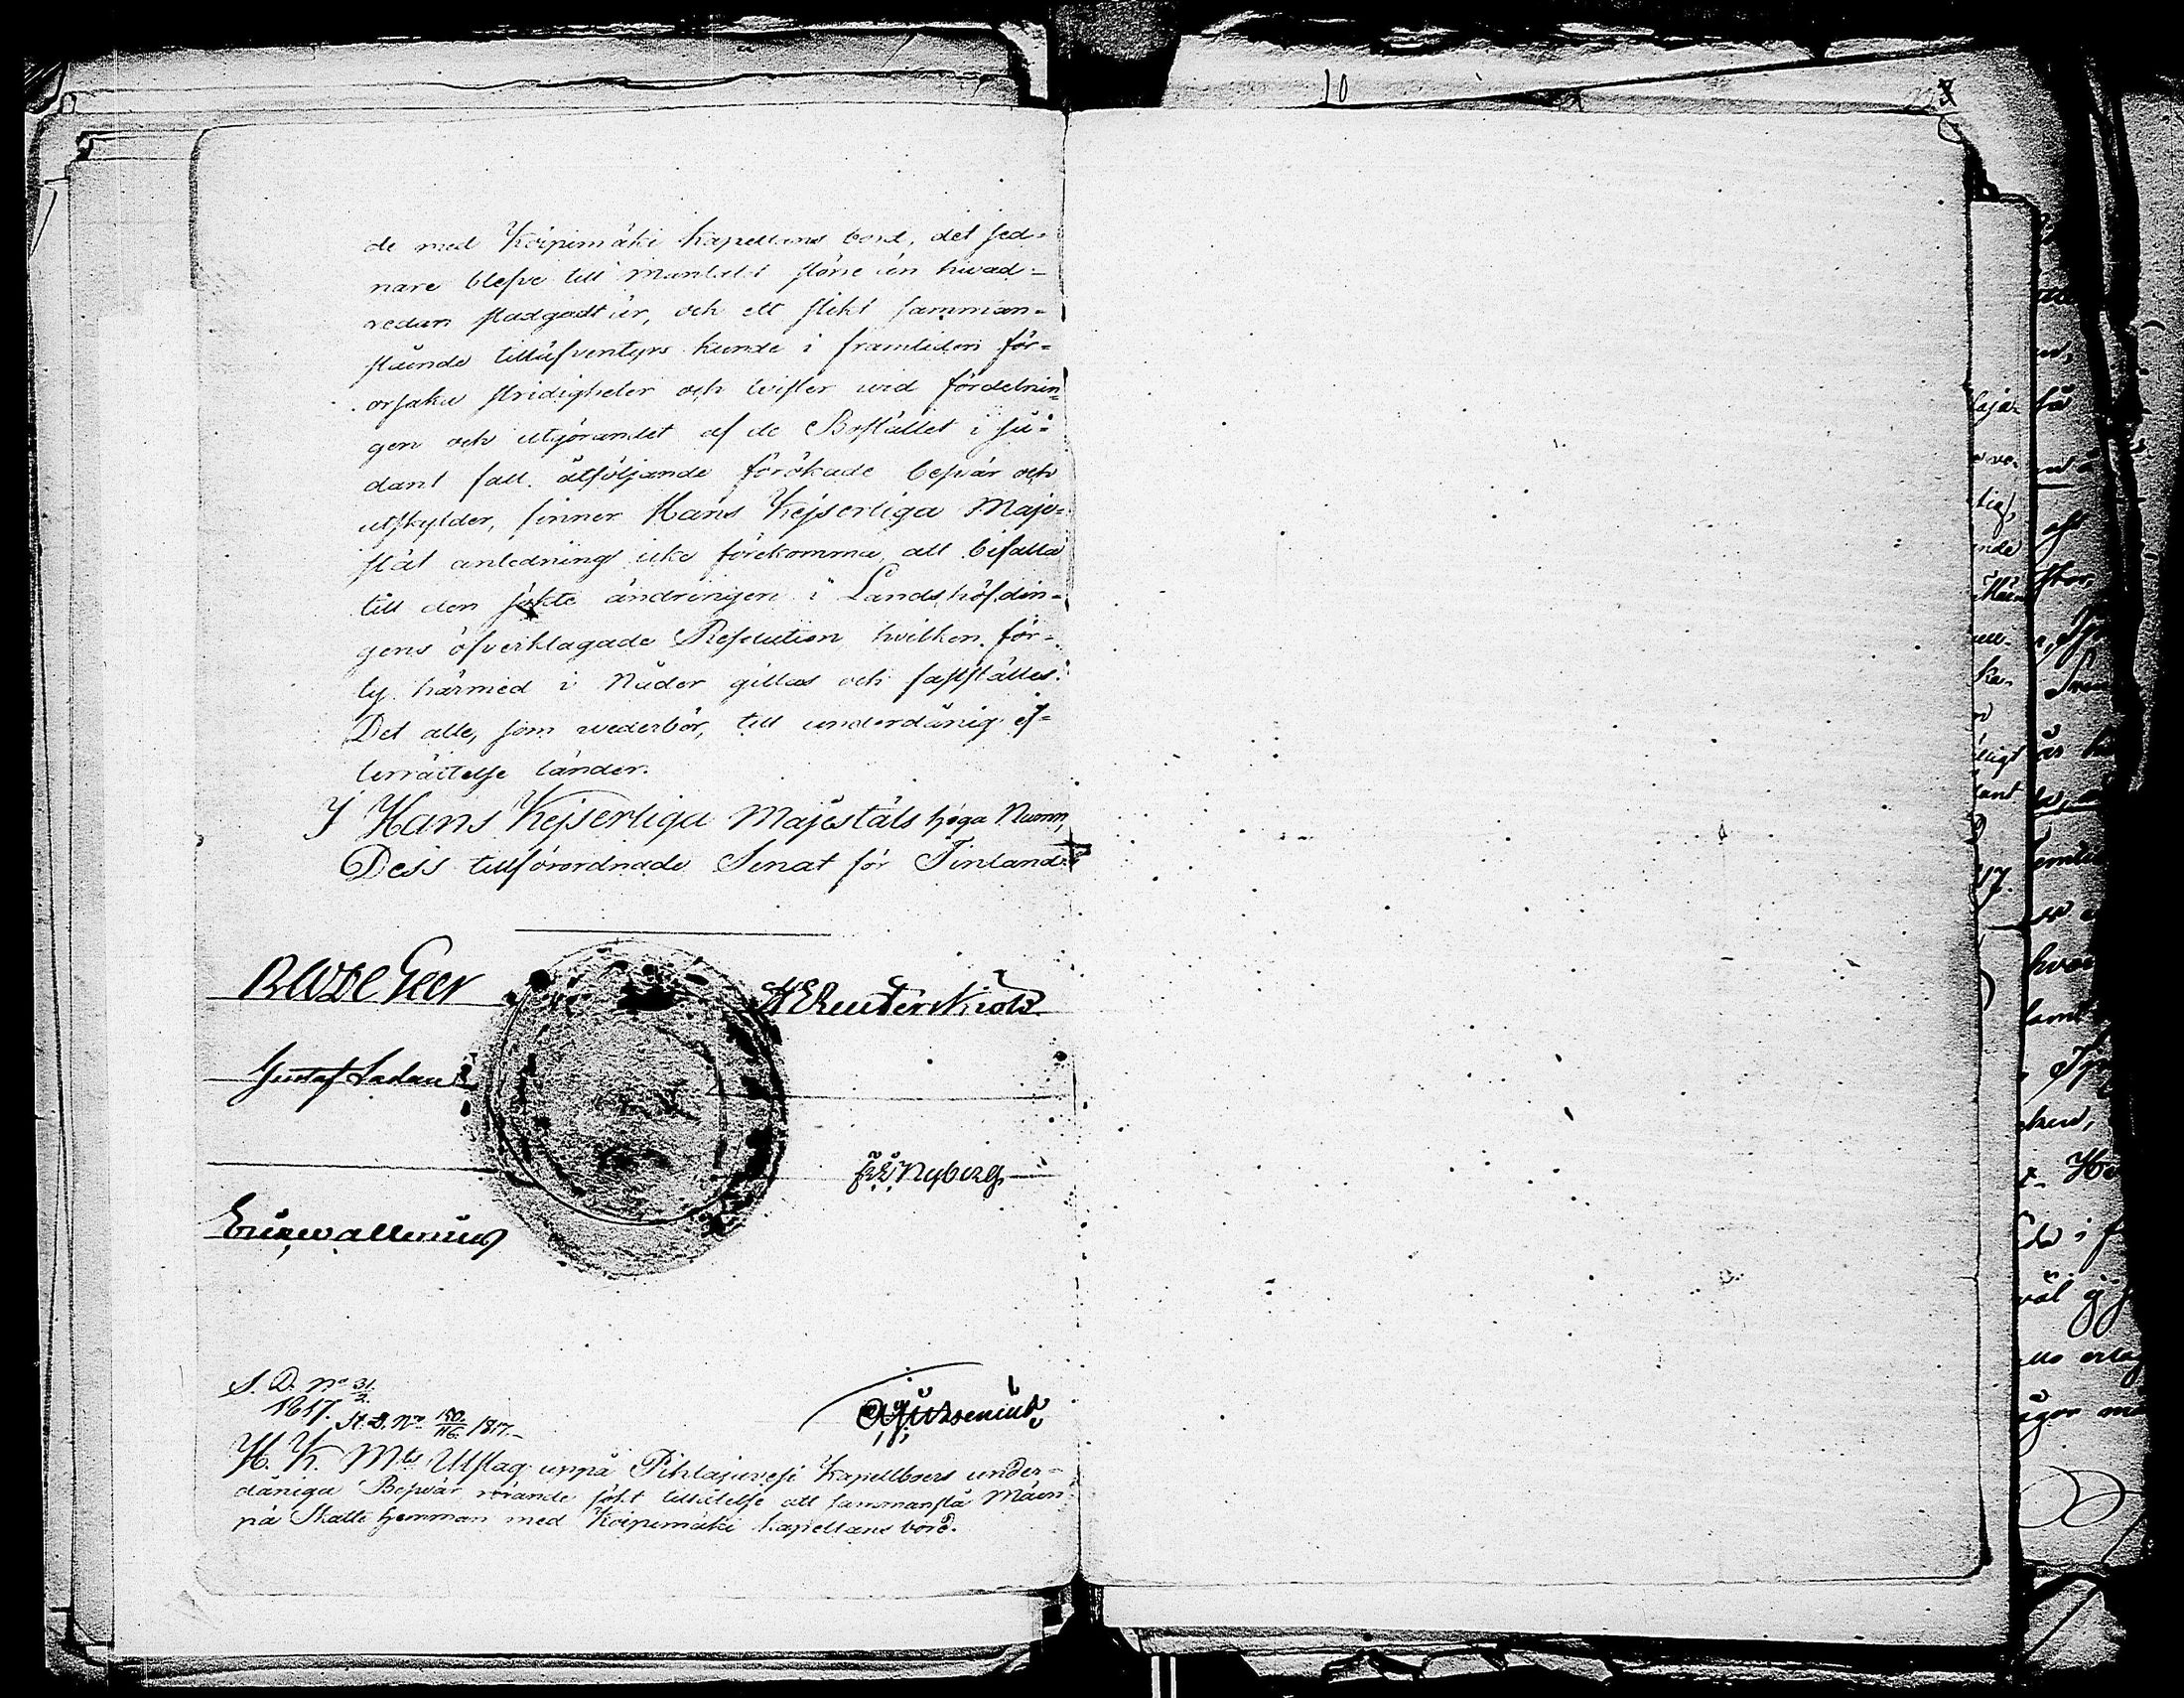 10
de med Koipimäki Kapellans bord, det sed-
nare blefve till Mantalet större än hvad
redan stadgadt är, och ett slikt samman-
stående tilläfventyrs kunde i framtiden för-
orsaka stridigheter och tvister wid fördelnin-
gen och utgörandet af de Bostället i så-
dant fall åtföljande förökade besvär och
utskylder, finner Hans Kejserliga Maje-
stät anledning icke förekomma att bifalla
till den sökte ändringen i Landshöfdin-
gens öfverklagade Resolution hvilken för-
ty härmed i Nåder gillas och fastställes.
Det alle, som wederbör, till underdånig ef-
terrättelse länder.
I Hans Kejserliga Majestäts höga Namn,
Dess tillförordnade Senat för Finland
RWDeGeer
Gustaf Ladau
Nyberg
Eric Wallenius
S. D. No 31/2
1817. St. D. No 150/116 1817.
H. K. Mts Utslag uppå Pihlajavesi Kapellboers under-
dåniga Besvär rörande sökt tillåtelse att sammanslå Mäen
pä Skatte Hemman med Koipimäki Kapellans bord.